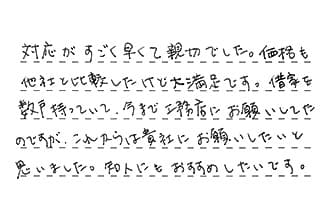 対応がすごく早くて親切でした。価格も
他社と比較したけど大満足です。借家を
数戸持っていて、今まで工務店にお願いしてた
のですが、これからは貴社にお願いしたいと
思いました。知人にもおすすめしたいです。